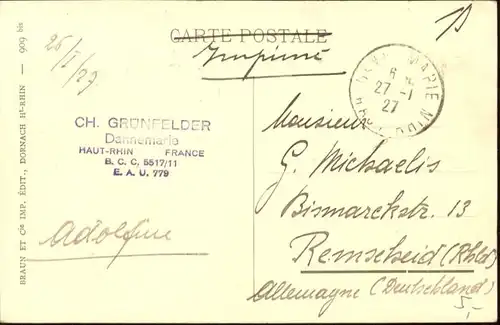 CARTE POSTALE
Imprimé
26/I/27
BRAUN ET Cie IMP. ÉDIT., DORNACH Ht-RHIN — 909 bis
27 -1
27
CH. GRÜNFELDER
Dannemarie
HAUT-RHIN FRANCE
B. C. C. 5517/11
E. A. U. 779
Adolfine
Monsieur
G. Michaelis
Bismarckstr. 13
Remscheid (Rhld)
Allemagne (Deutschland)
5,-